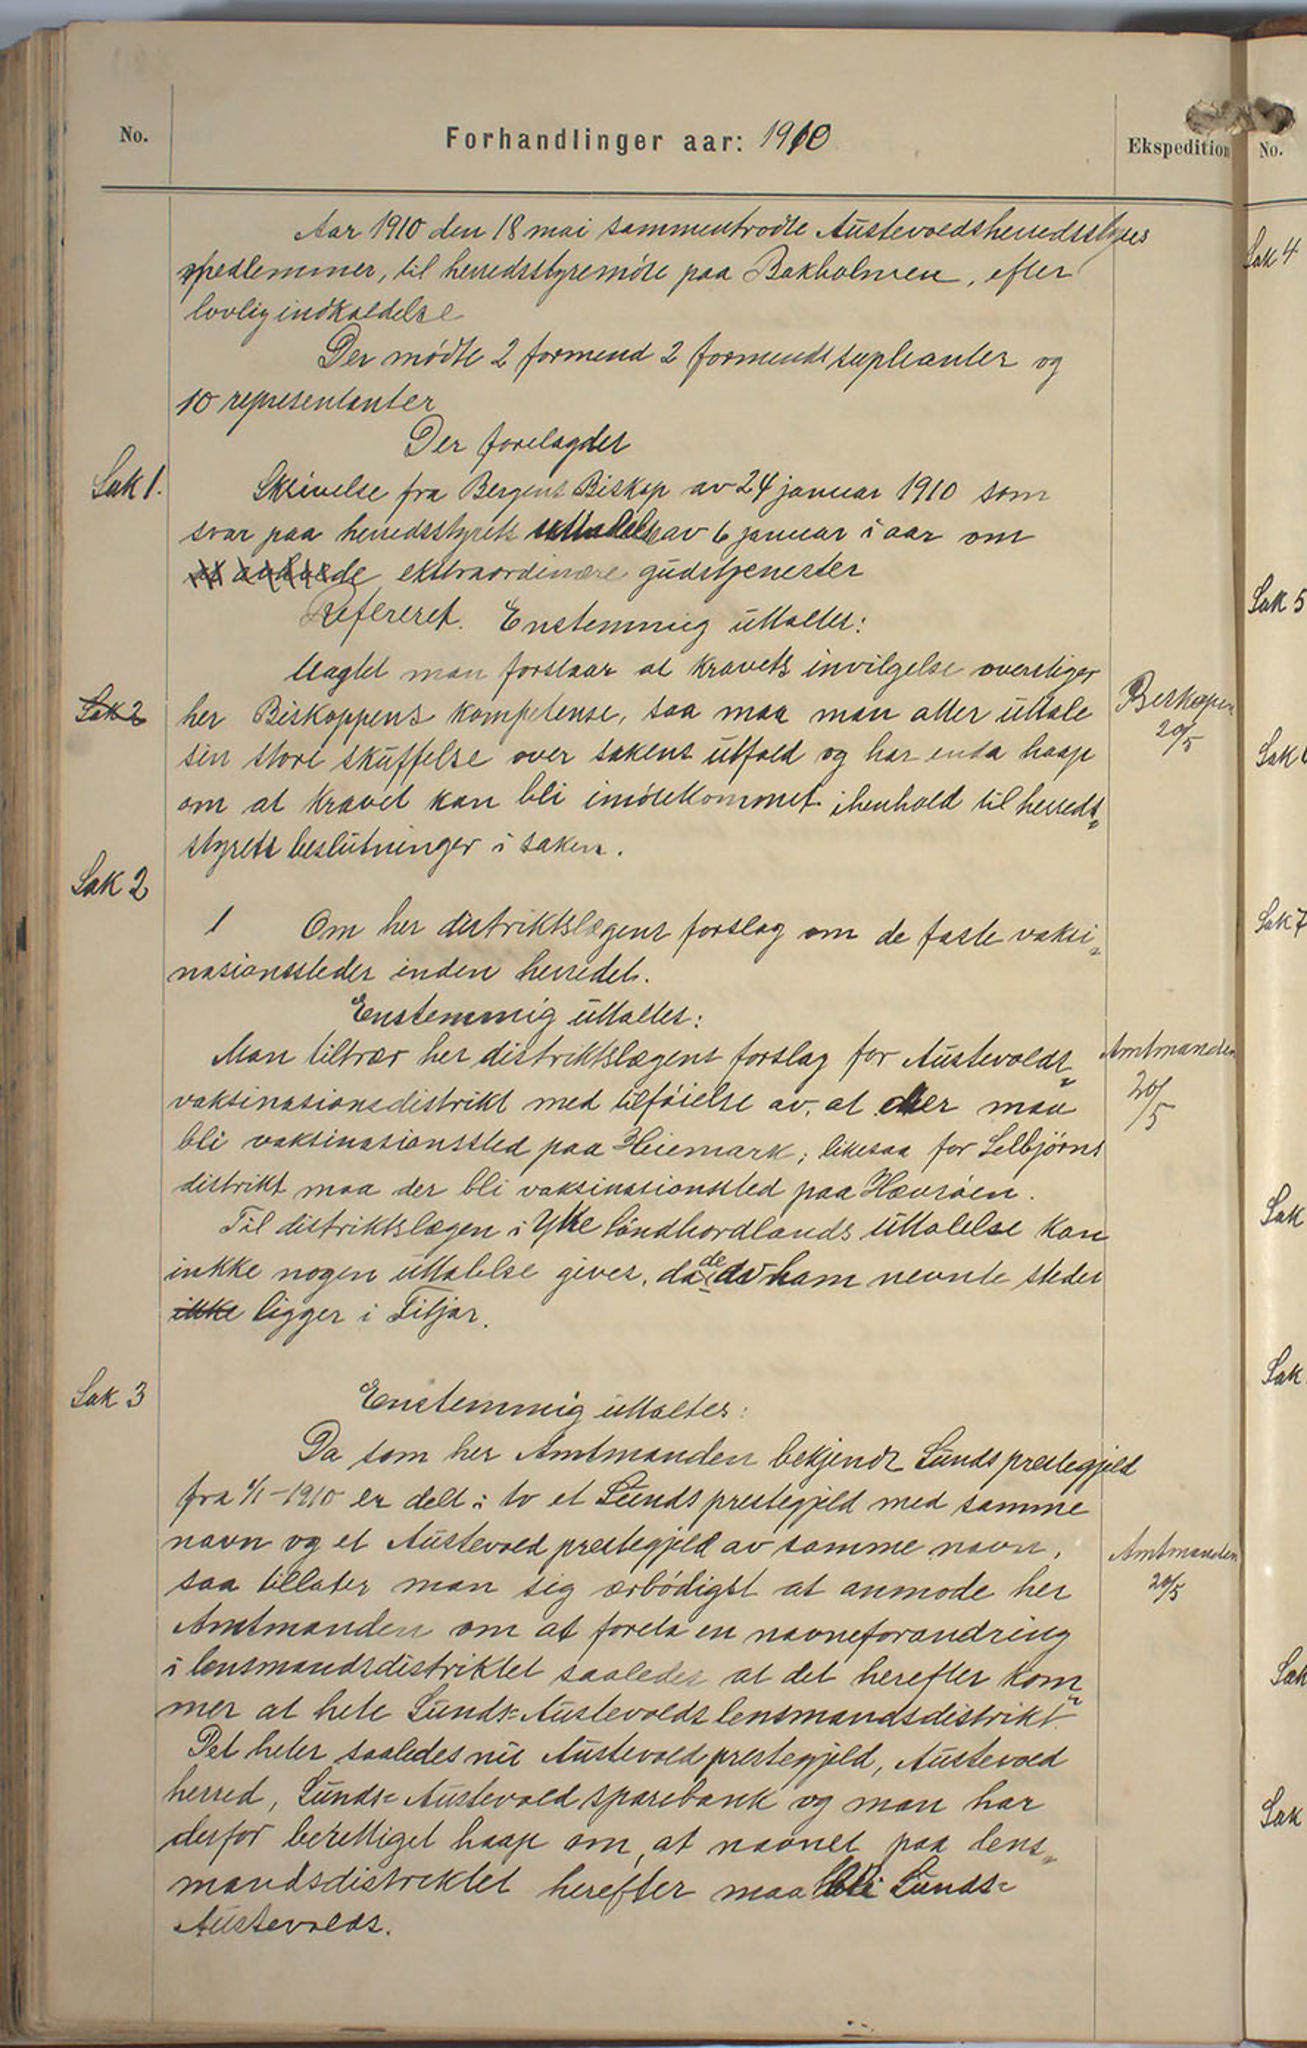 No.
Forhandlinger aar: 1910
Ekspedition
No.
Aar 1910 den 18 mai sammentraadte Austevoldsherredsstyres
medlemmer, til herredsstyremöte paa Bakholmen, efter
lovlig indkaldelse
Der mødte 2 formend 2 formendssupleanter og
10 representanter
Der forelagdes
Sak 1.
Skrivelse fra Bergens Biskop av 24 januar 1910 som
svar paa herredsstyrets uttalelse av 6 januar i aar om
de ekstraordinære gudstjenester
Refereret. Enstemmig uttaltes:
Uagtet man forstaar at kravets invilgelse overstiger
Sak 2
her Biskoppens kompetense, saa maa man atter uttale
Biskopen
20/5
sin store skuffelse over sakens utfald og har enda haap
om at kravet kan bli imötekommet ihenhold til herreds-
styrets beslutninger i saken.
Sak 2
1 Om her distriktslægens forslag om de faste vaksi-
nasionssteder inden herredet.
Enstemmig uttaltes:
Man tiltrær her distriktslægens forslag for Austevolds-
Amtmanden
20/5
vaksinasionsdistrikt med tilföielse av, at der maa
bli vaksinasionssted paa Heiemark; likesaa for Selbjørns
distrikt maa der bli vaksinasionssted paa Hævröen.
Til distriktslægen i Ytre Söndhordlands uttalelse kan
inkke nogen uttalelse gives, da de av ham nevnte steder
ikke ligger i Fitjar.
Sak 3
Enstemmig uttaltes:
Da som her Amtmanden bekjendt Sunds prestegjeld
fra 1/1-1910 er delt i to et Sunds prestegjeld med samme
navn og et Austevold prestegjeld av samme navn,
Amtmanden
20/5
saa tillater man sig ærbödigst at anmode her
Amtmanden om at foreta en navneforandring
i lensmandsdistriktet saaledes at det herefter kom-
mer at hete Sunds-Austevolds lensmandsdistrikt.
Det heter saaledes nu Austevold prestegjeld, Austevold
herred, Sunds-Austevold sparebank og man har
derfor berettiget haap om, at navnet paa lens-
mandsdistriktet herefter maa bli Sunds-
Austevolds.
Sak 4
Sak 5
Sak
Sak 7
Sak
Sak
Sak
Sak